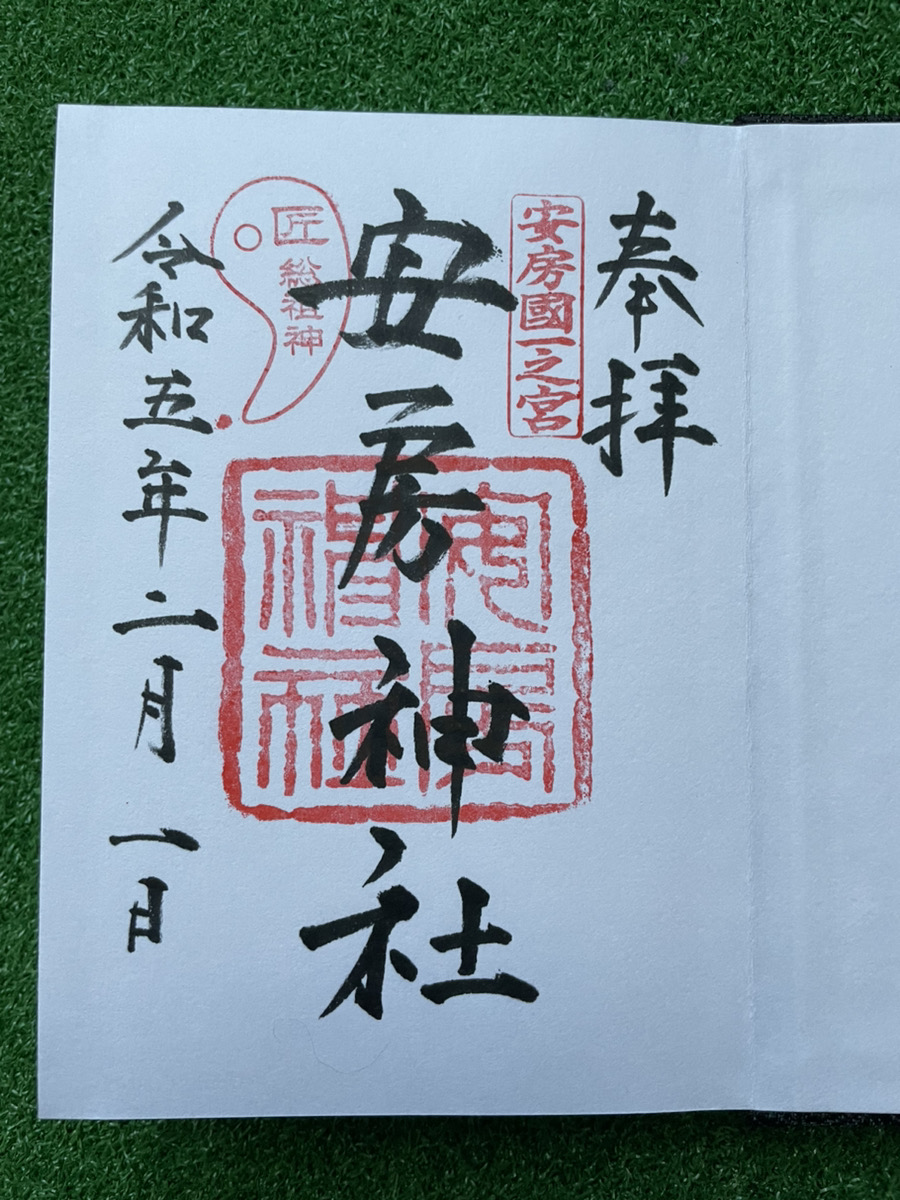 奉拝
安房國一之宮
安房神社
安房神社
匠
総祖神
令和五年二月一日